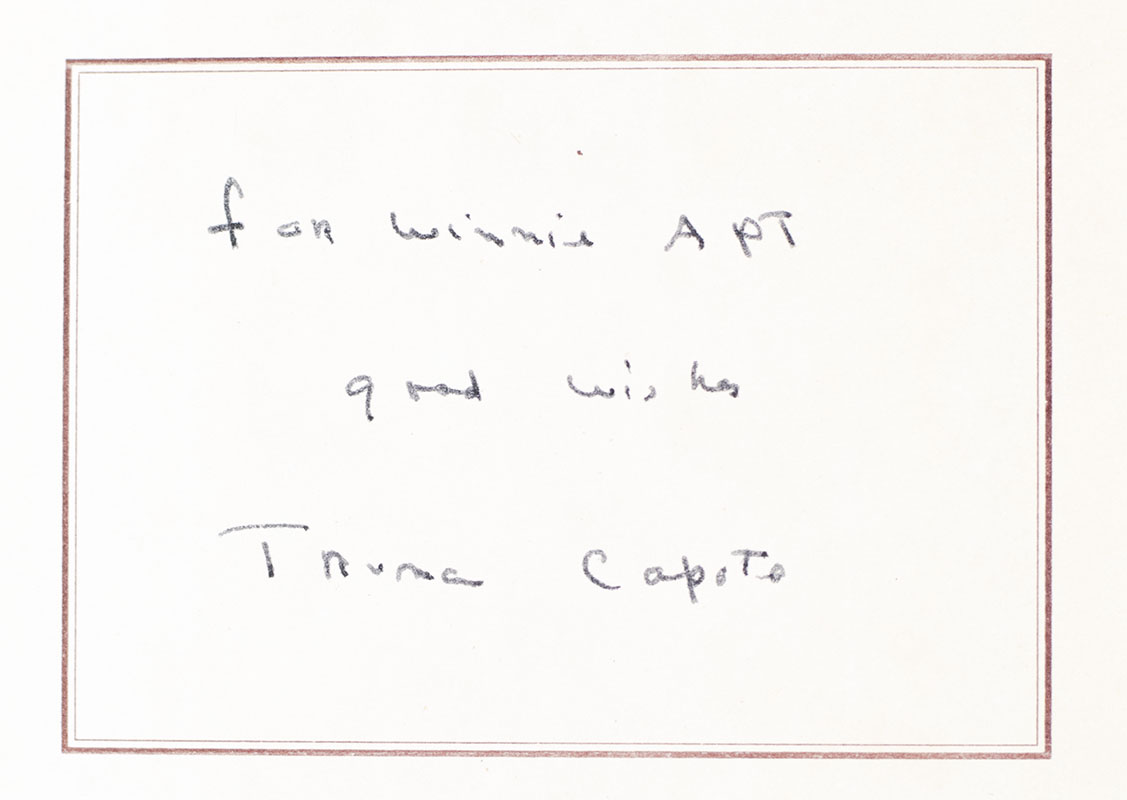 for Winnie Apt
good wishes
Truman Capote